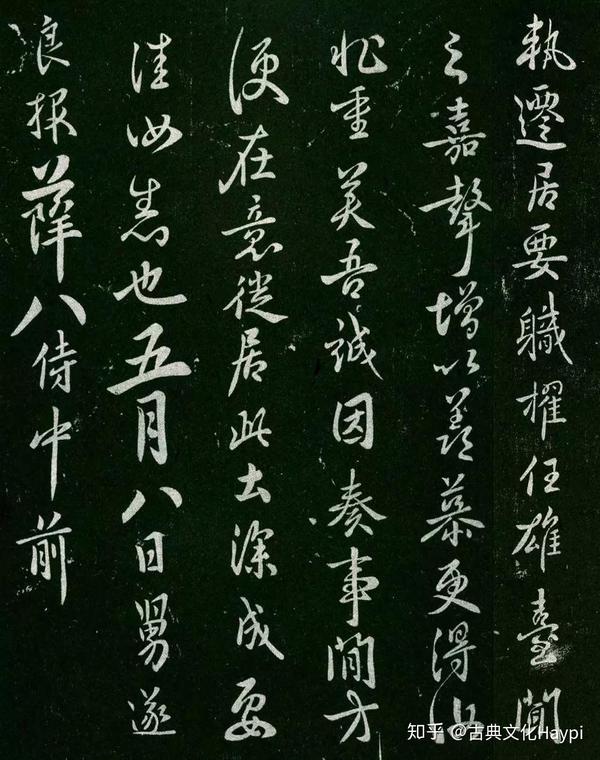 執遷居要職擢任雄臺聞
之嘉聲增以羨慕更得汝
非重美吾誠因奏事閒方
便在意從居此土深成要
佳汝悉也五月八日舅遂
良報薛八侍中前
知乎 @古典文化Haypi